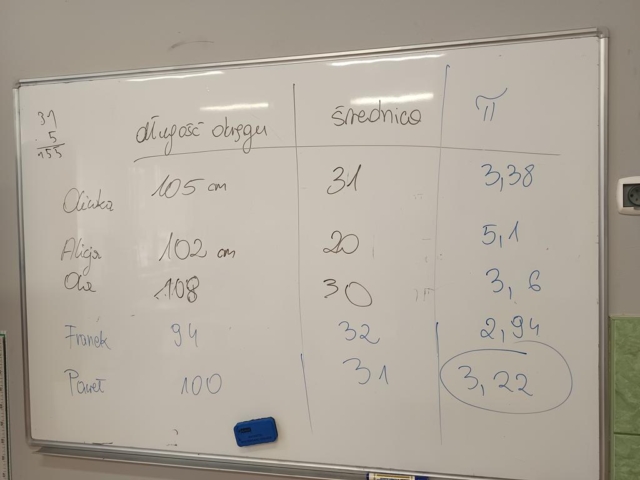 31
. 5
155
długość okręgu średnica π
Oliwka 105 cm 31 3,38
Alicja 102 cm 20 5,1
Ola 108 30 3,6
Franek 94 32 2,94
Paweł 100 31 3,22